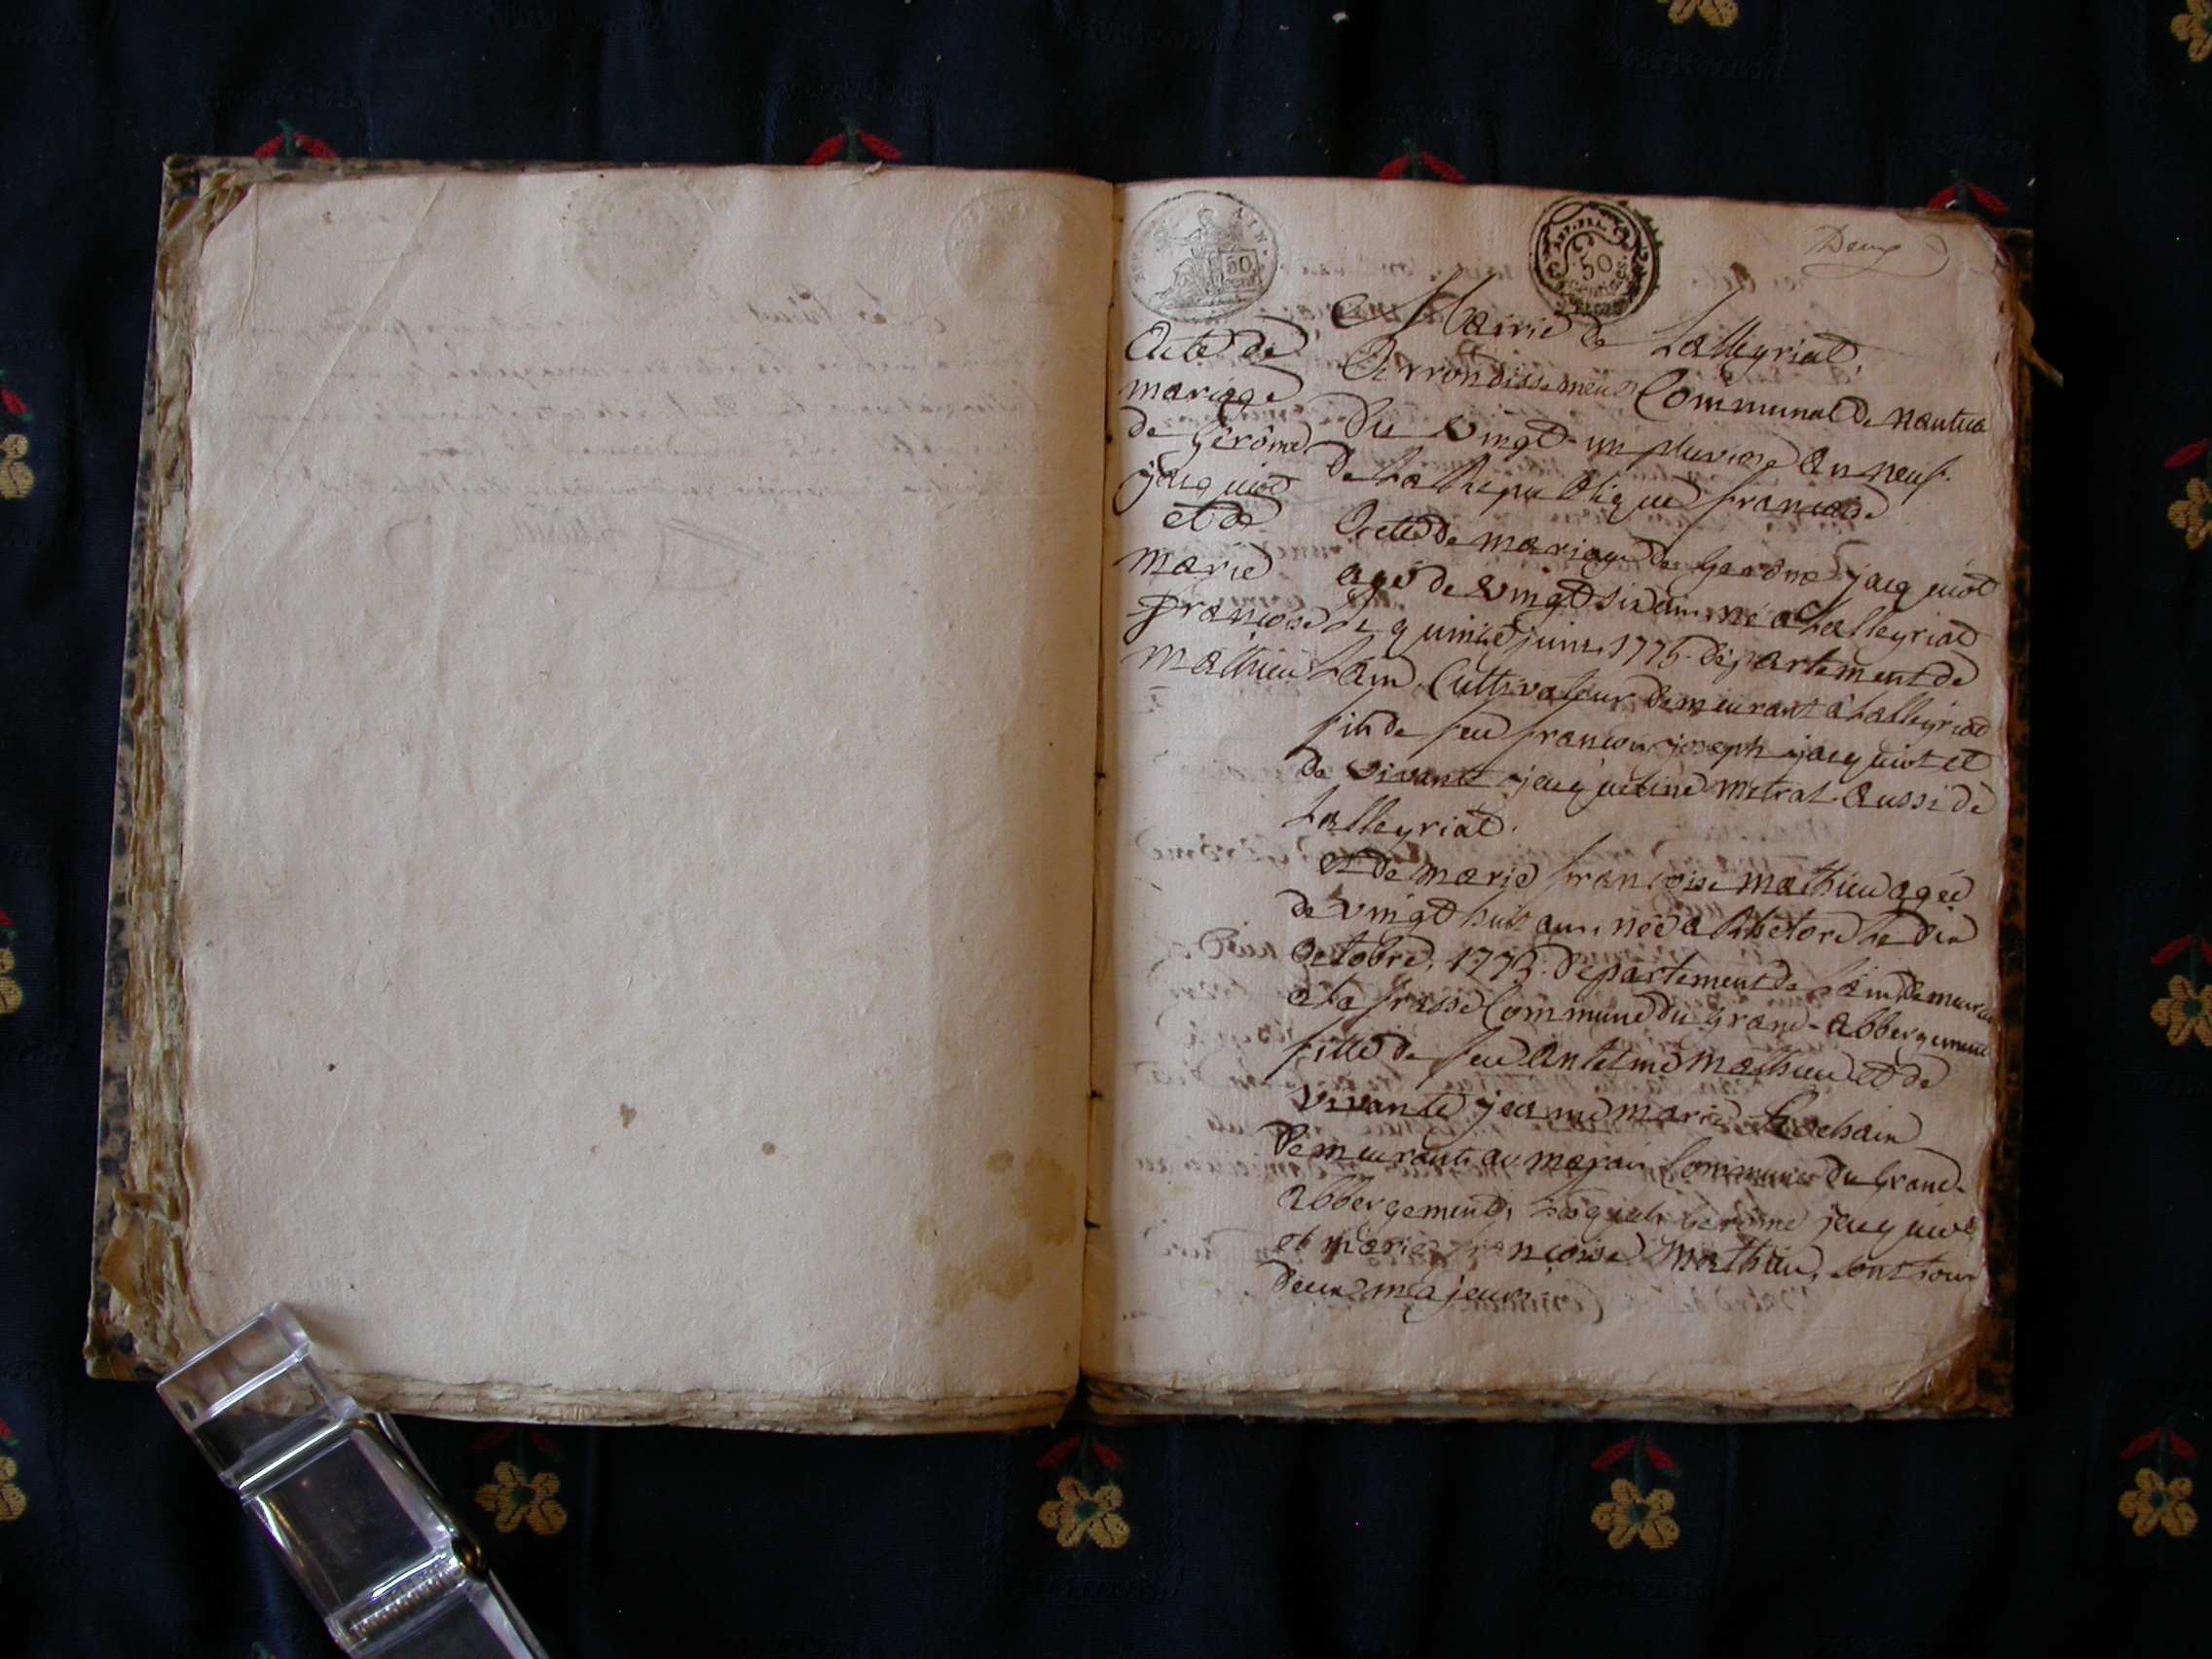 Deux
AIN.
50
REP. FRA.
50
centimes
Mairie de Lalleyriat,
Arrondissement Communal de nantua
Du vingt-un pluviose an neuf.
de La Republique francaise
Acte de
mariage
de Gérôme
jacquiot
et de
marie
francoise
Mathieu
Acte de mariage de Gerôme jacquiot
agé de vingt six ans, né a Lalleyriat
le quinze juin 1775. département de
Lain Cultivateur demeurant à Lalleyriat
fils de feu francois joseph jacquiot et
de vivante jacqueline metral aussi de
Lalleyriat.
et de marie francoise mathieu agée
de vingt huit ans, née a Le dix
octobre, 1773. Departement de Lain,
a La frasse Commune du grand-abbergement
fille de feu antelme mathieu et de
vivante jeanne marie
Demeurants au marais Commune du Grand-
abbergement, Lesquels Gerôme jacquiot
et marie francoise mathieu, sont tous
deux majeurs.